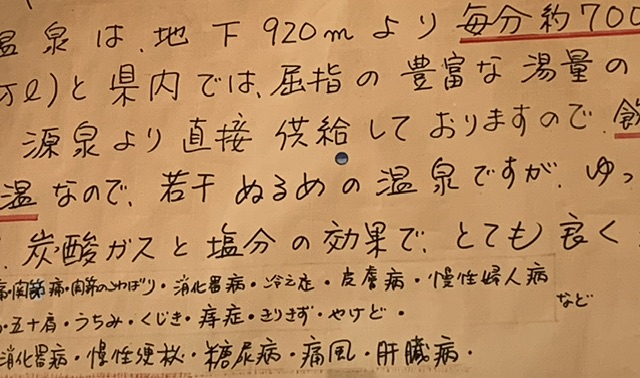 温泉は、地下920mより毎分約700
万ℓ)と県内では、屈指の豊富な湯量の
源泉より直接供給しておりますので、飲
温なので、若干ぬるめの温泉ですが、ゆっ
炭酸ガスと塩分の効果で、とても良く
痛・関節痛・関節のこわばり・消化器病・冷え症・皮膚病・慢性婦人病
など
五十肩・うちみ・くじき・痔症・きりきず・やけど・
消化器病・慢性便秘・糖尿病・痛風・肝臓病・